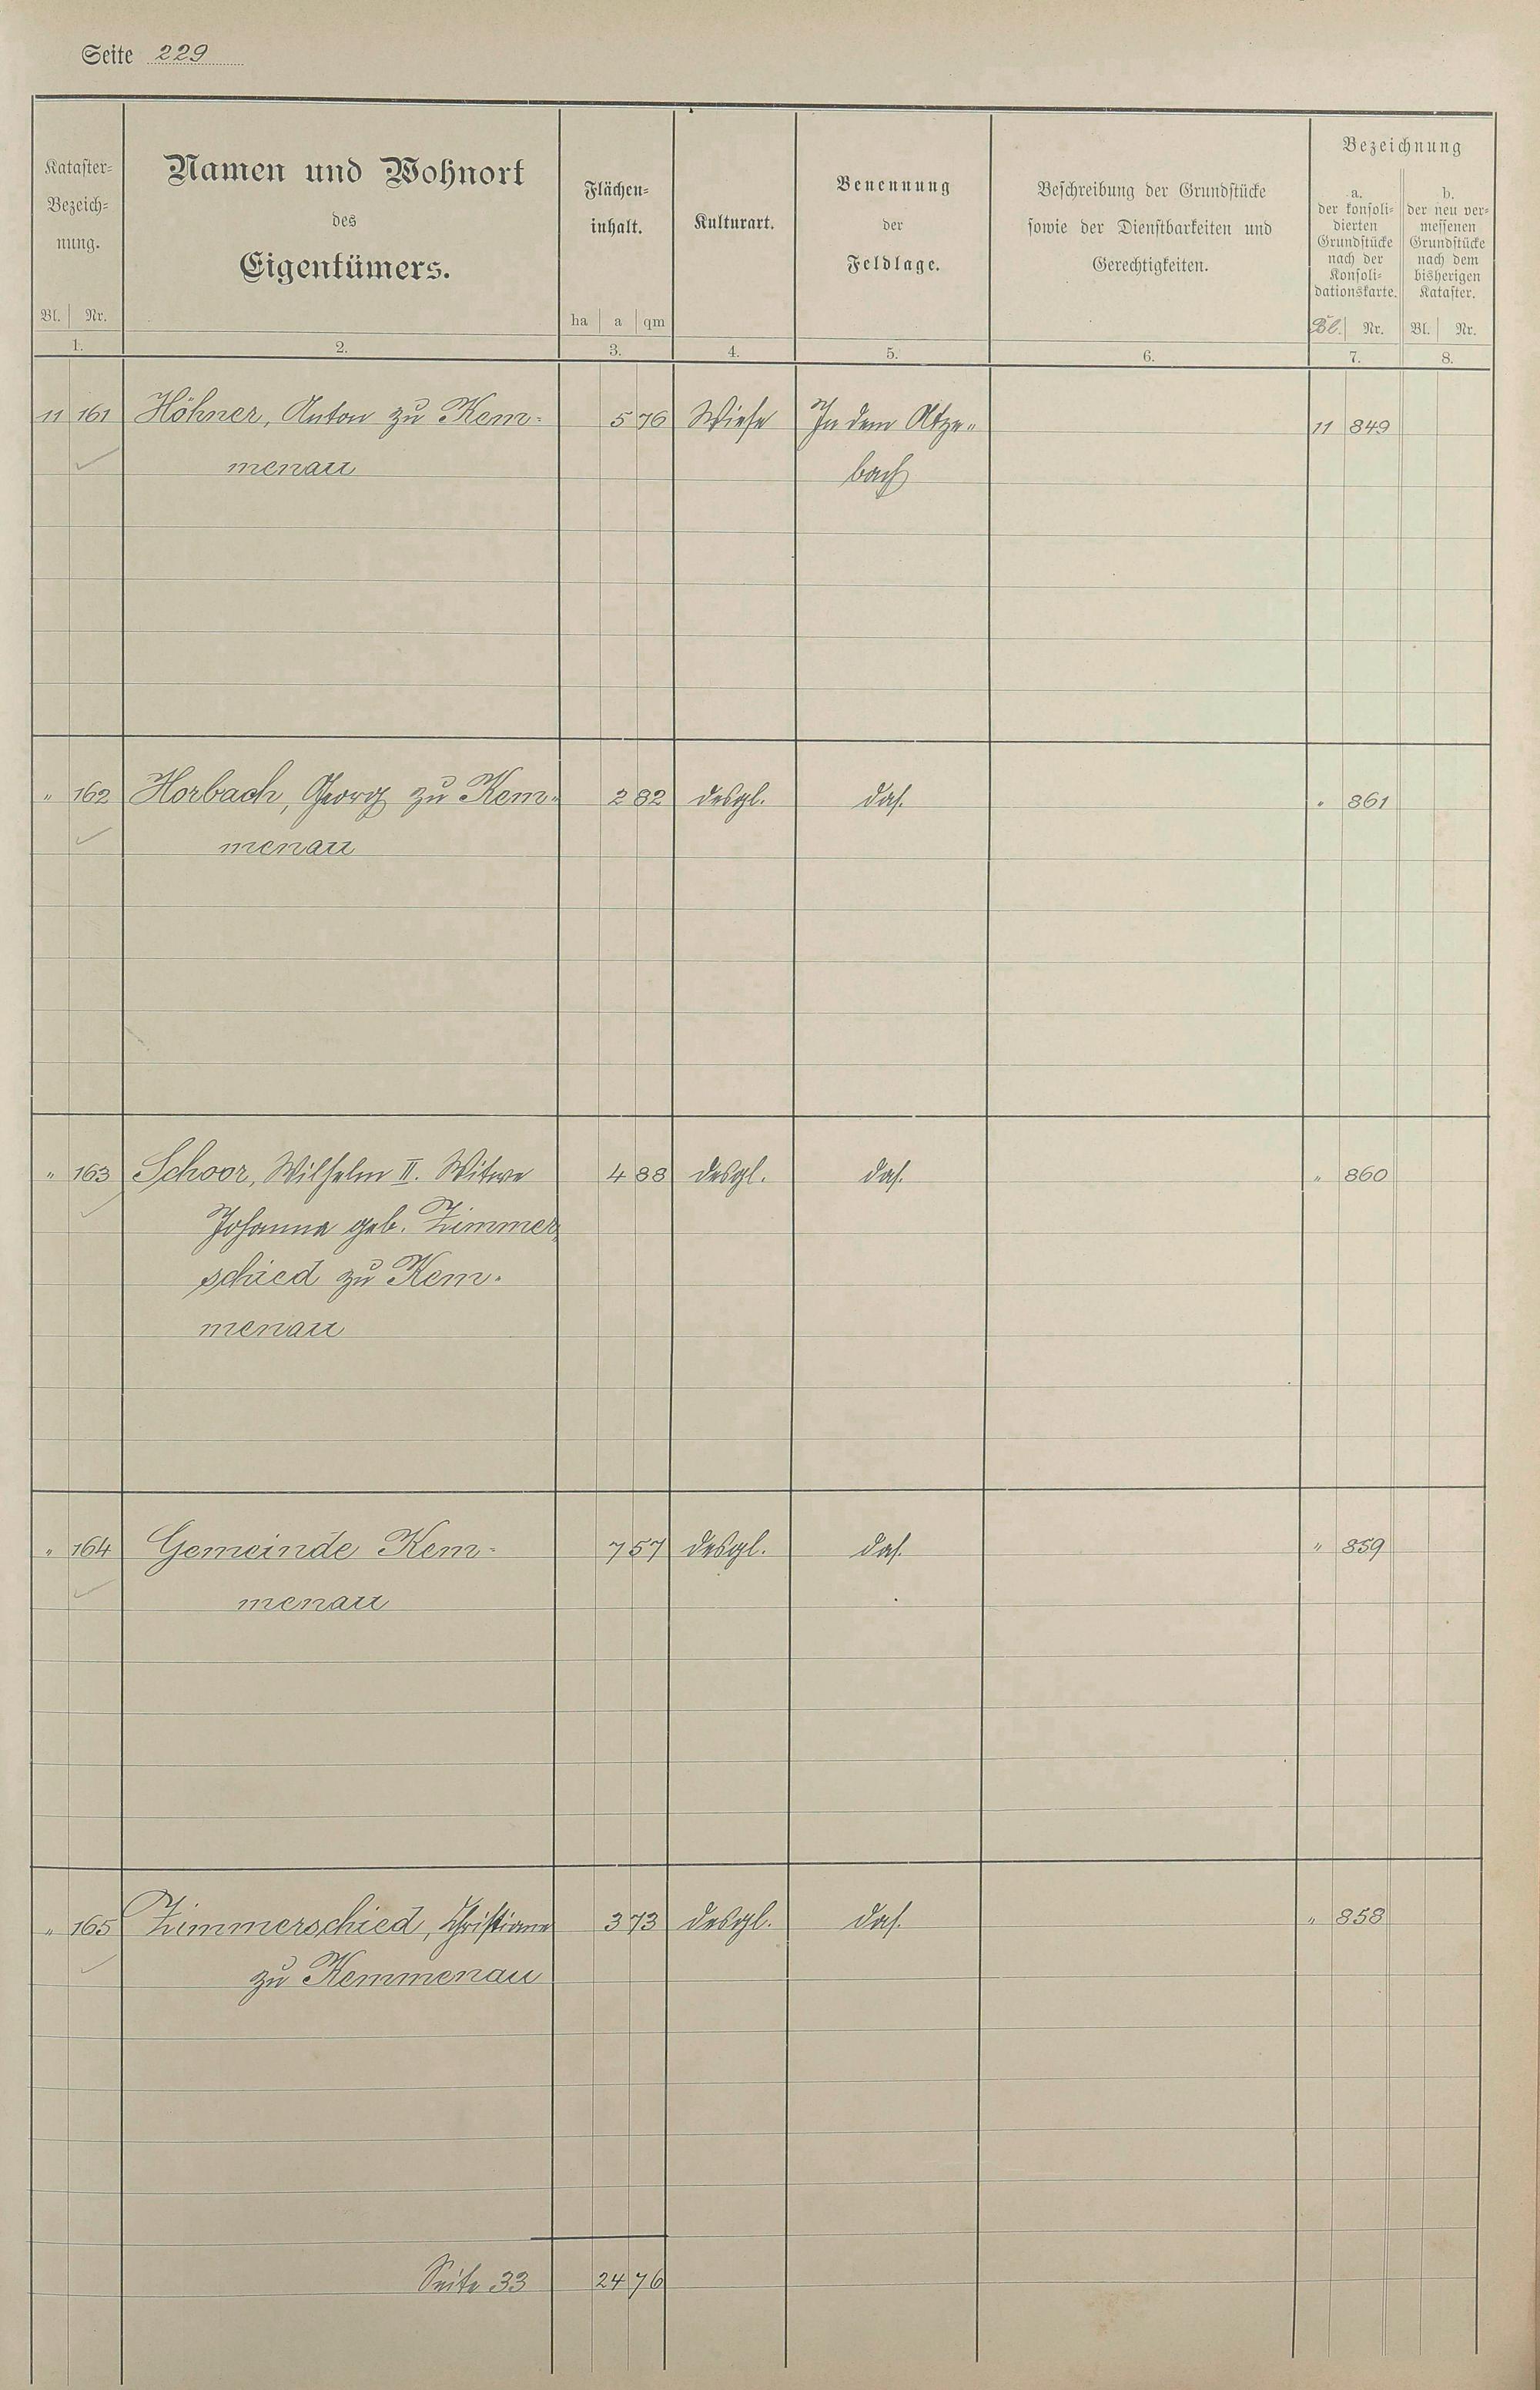 Seite 229
Kataster=
Bezeich=
nung.
Bl. Nr.
1.
Namen und Wohnort
des
Eigentümers.
2.
Flächen=
inhalt.
ha a qm
3.
Kulturart.
4.
Benennung
der
Feldlage.
5.
Beschreibung der Grundstücke
sowie der Dienstbarkeiten und
Gerechtigkeiten.
6.
Bezeichnung
a.
der konsoli=
dierten
Grundstücke
nach der
Konsoli=
dationskarte.
Bl. Nr.
7.
b.
der neu ver=
messenen
Grundstücke
nach dem
bisherigen
Kataster.
Bl. Nr.
8.
11 161 Höhner, Anton zu Kem= 5 76 Wiese In dem Atze= 11 849
menau bach
" 162 Horbach, Georg zu Kem= 2 82 desgl. das. " 861
menau
" 163 Schoor, Wilhelm II. Witwe 4 88 desgl. das. " 860
Johanna geb. Zimmer=
schied zu Kem=
menau
" 164 Gemeinde Kem= 7 57 desgl. das. " 859
menau
" 165 Zimmerschied, Christiane 3 73 desgl. das. " 858
zu Kemmenau
Seite 33 24 76